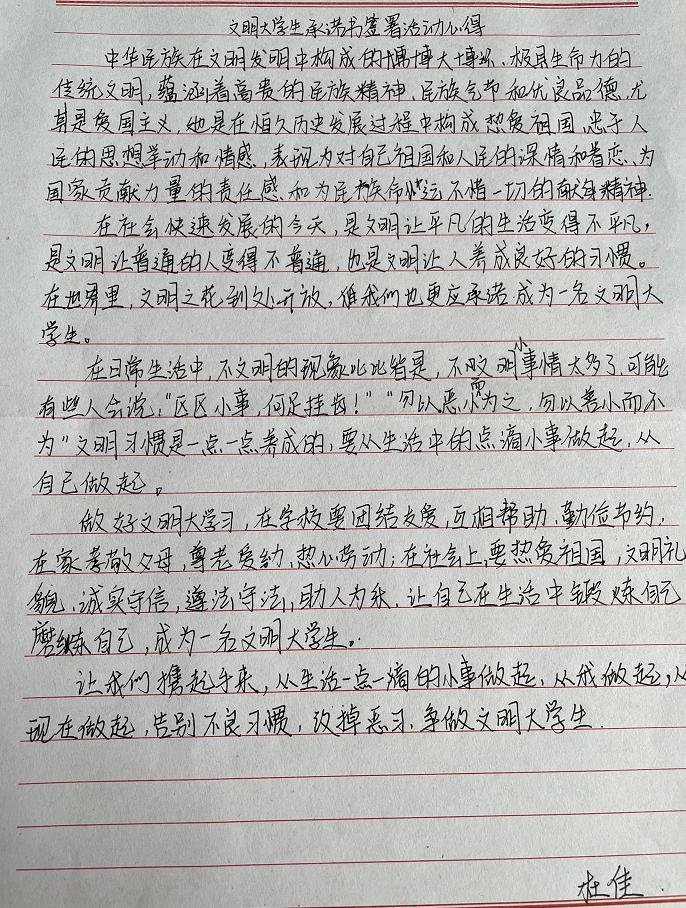 文明大学生承诺书签署活动心得
中华民族在文明发明中构成的博大博、极具生命力的
传统文明，蕴涵着高贵的民族精神、民族气节和优良品德，尤
其是爱国主义，也是在恒久历史发展过程中构成热爱祖国，忠于人
民的思想举动和情感，表现为对自己祖国和人民的深情和着恋、为
国家贡献力量的责任感和为民族命运不惜一切的献身精神.
在社会快速发展的今天，是文明让平凡的生活变得不平凡，
是文明让普通的人变得不普通，也是文明让人养成良好的习惯。
在世界里，文明之花到处开放，我们也更应承诺.成为一名文明大
学生。
在日常生活中，不文明的现象比比皆是，不文明小事情太多了，可能
有些人会说，"区区小事，何足挂齿！""勿以恶小而为之，勿以善小而不
为"文明习惯是一点一点养成的，要从生活中的点滴小事做起，从
自己做起。
做好文明大学习，在学校要团结友爱，互相帮助，勤俭节约，
在家孝敬父母，尊老爱幼，热心劳动；在社会上，要热爱祖国，文明礼
貌，诚实守信，遵法守法，助人为乐，让自己在生活中锻炼自己
磨练自己，成为一名文明大学生。
让我们携起手来，从生活一点一滴的小事做起，从我做起，从
现在做起，告别不良习惯，改掉恶习，争做文明大学生.
杜佳.